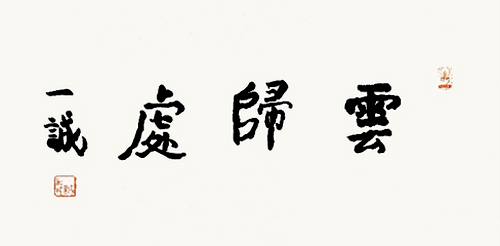 雲歸處
一誠